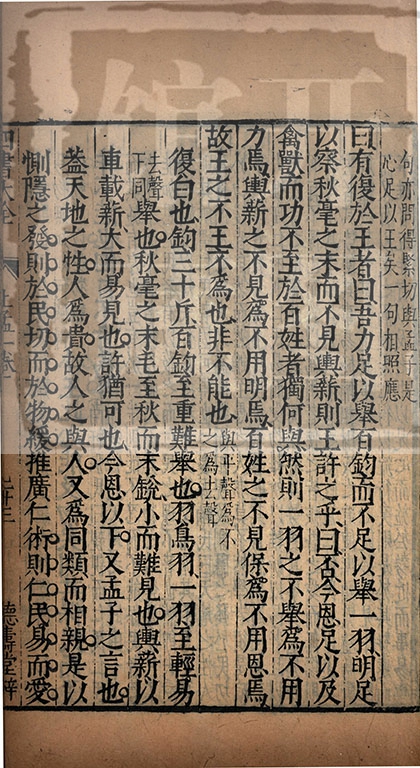 句亦問得緊切與孟子是
心足以王矣一句相照應
曰有復於王者曰吾力足以舉百鈞而不足以舉一羽明足
以察秋毫之末而不見輿薪則王許之乎曰否今恩足以及
禽獸而功不至於百姓者獨何與然則一羽之不舉爲不用
力焉輿薪之不見爲不用明焉百姓之不見保爲不用恩焉
故王之不王不爲也非不能也
與平聲爲不
之爲去聲
復白也鈞三十斤百鈞至重難舉也羽鳥羽一羽至輕易
去聲
下同
舉也秋毫之末毛至秋而末銳小而難見也輿薪以
車載薪大而易見也許猶可也今恩以下又孟子之言也
蓋天地之性人爲貴故人之與人又爲同類而相親是以
惻隱之發則於民切而於物緩推廣仁術則仁民易而愛
四書大全
上孟一卷
七十三
德壽堂梓